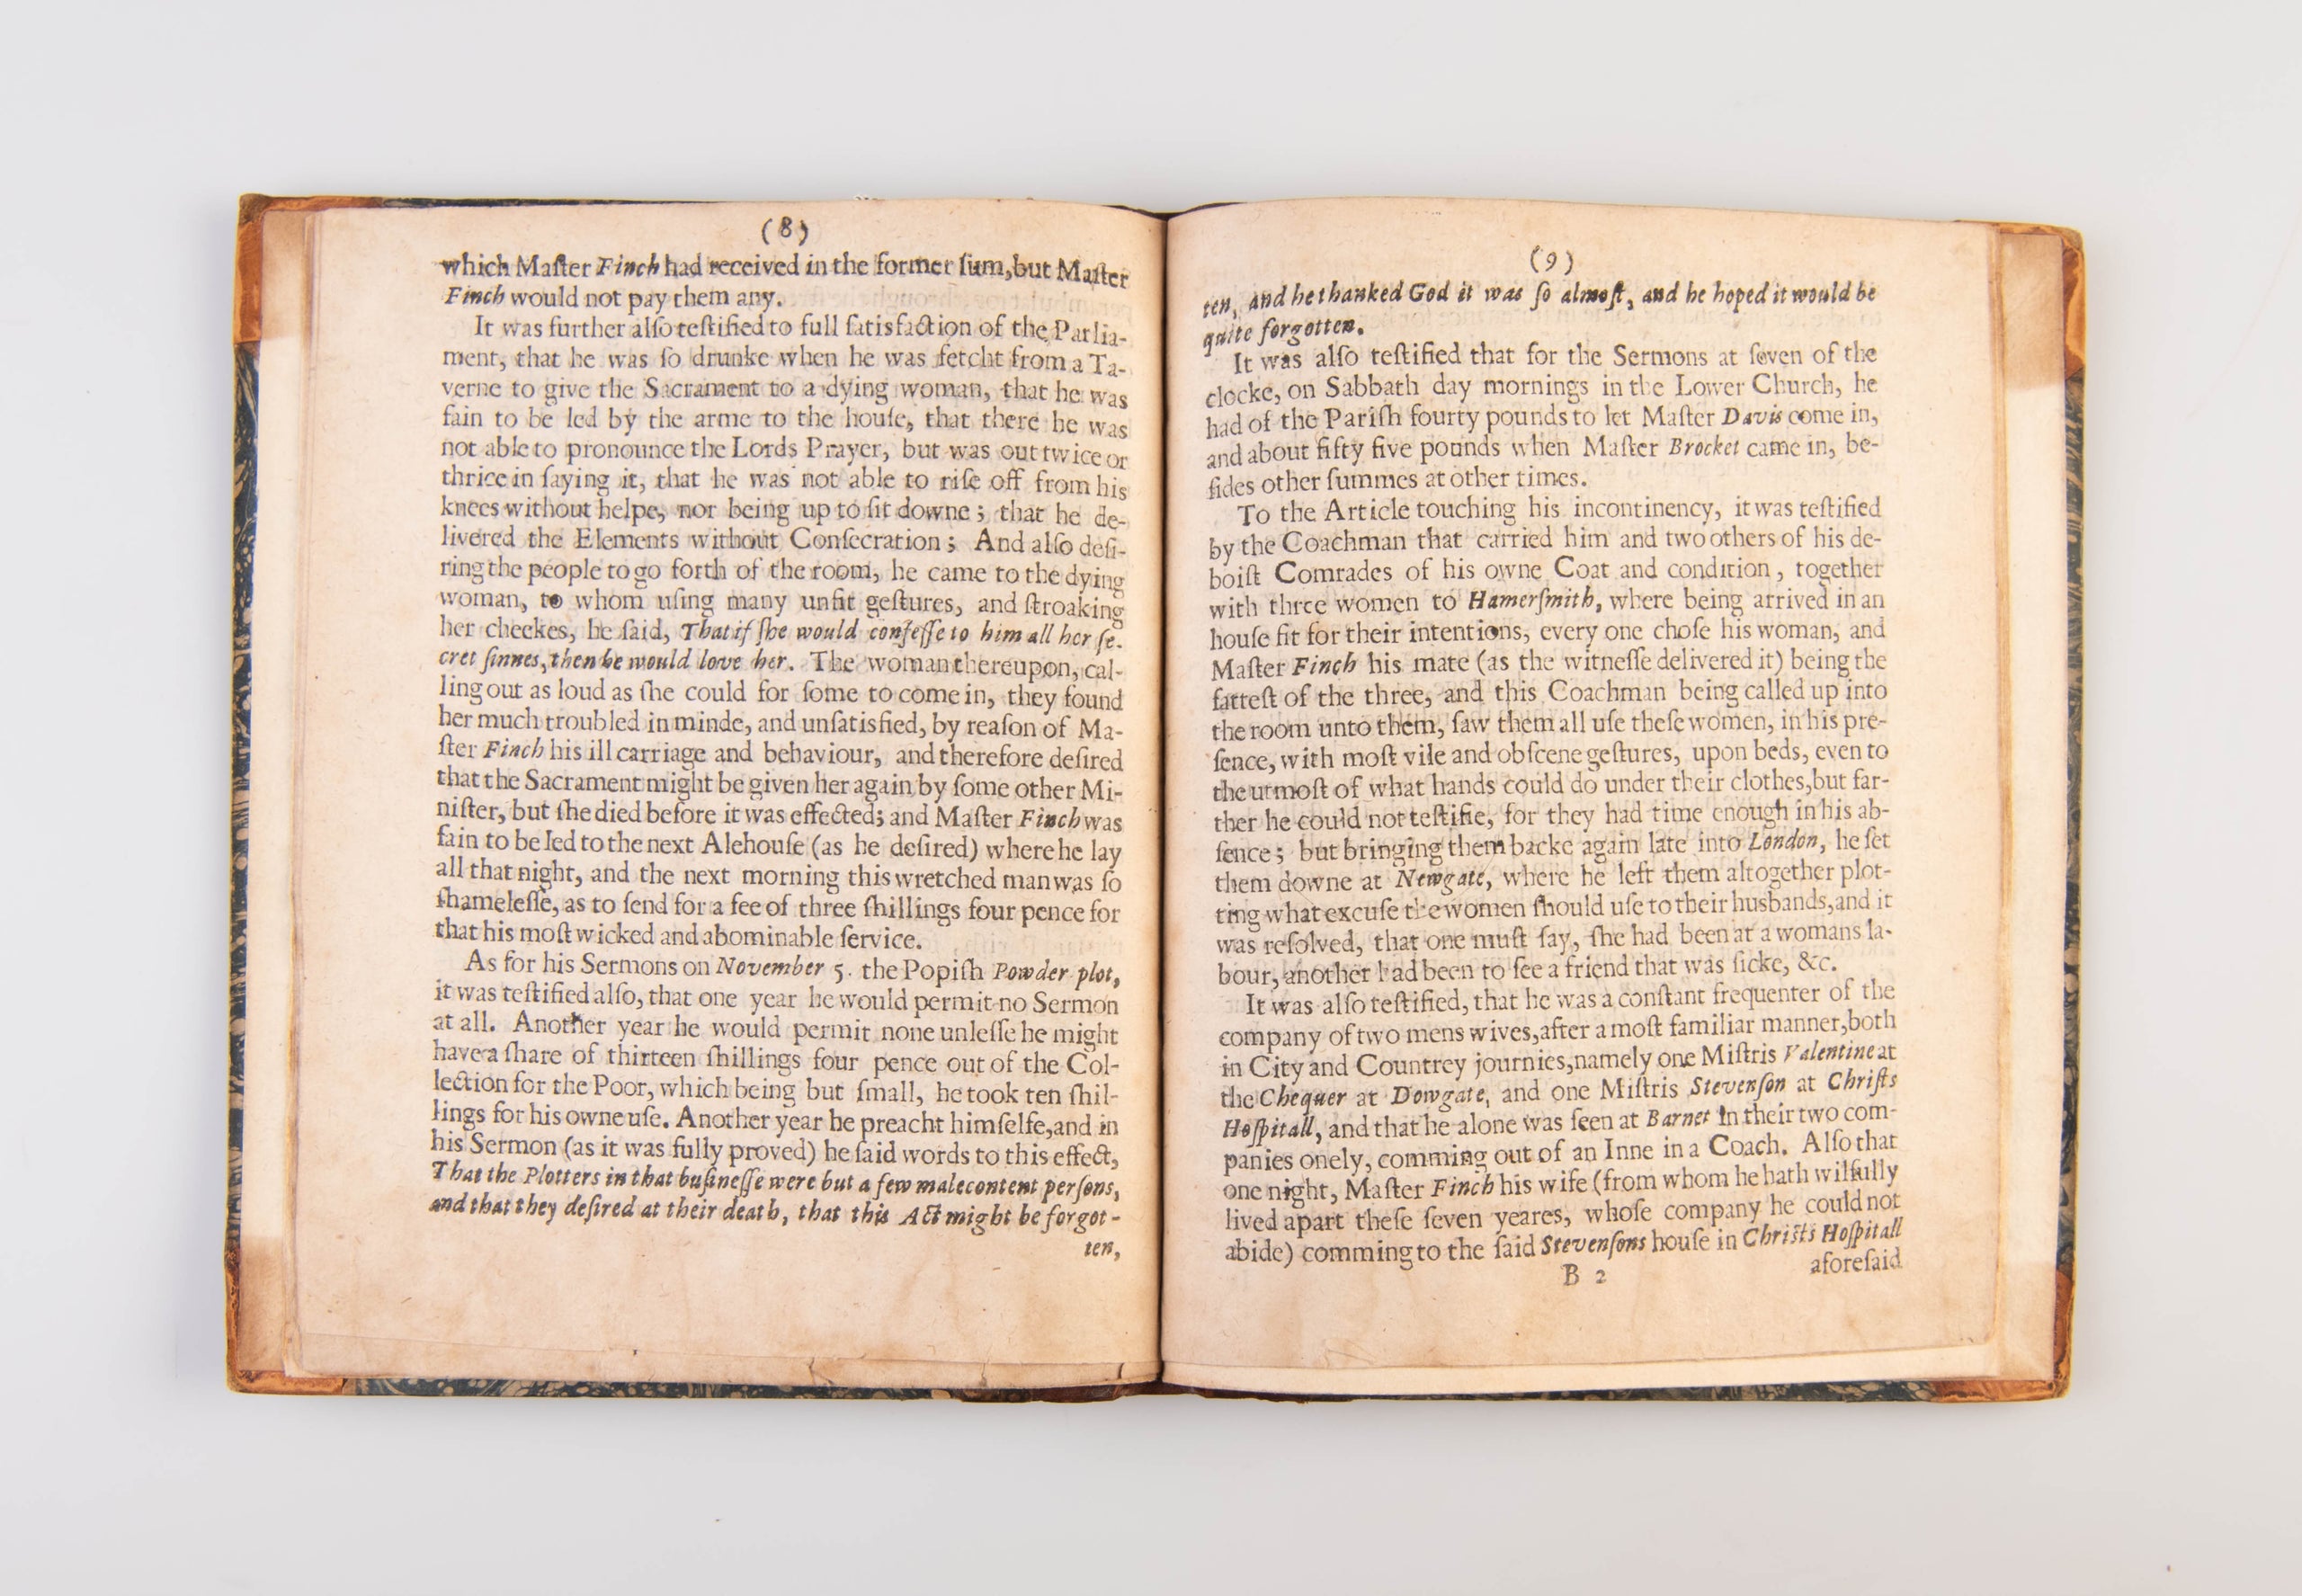 (8)
which Maſter Finch had received in the former ſum, but Maſter
Finch would not pay them any.
It was further alſo teſtified to full ſatisfaction of the Parlia-
ment, that he was ſo drunke when he was fetcht from a Ta-
verne to give the Sacrament to a dying woman, that he was
fain to be led by the arme to the houſe, that there he was
not able to pronounce the Lords Prayer, but was out twice or
thrice in ſaying it, that he was not able to riſe off from his
knees without helpe, nor being up to ſit downe; that he de-
livered the Elements without Conſecration; And alſo deſi-
ring the people to go forth of the room, he came to the dying
woman, to whom uſing many unfit geſtures, and ſtroaking
her cheekes, he ſaid, That if ſhe would confeſſe to him all her ſe-
cret ſinnes, then he would love her. The woman thereupon, cal-
ling out as loud as ſhe could for ſome to come in, they found
her much troubled in minde, and unſatisfied, by reaſon of Ma-
ſter Finch his ill carriage and behaviour, and therefore deſired
that the Sacrament might be given her again by ſome other Mi-
niſter, but ſhe died before it was effected; and Maſter Finch was
fain to be led to the next Alehouſe (as he deſired) where he lay
all that night, and the next morning this wretched man was ſo
ſhameleſſe, as to ſend for a fee of three ſhillings four pence for
that his moſt wicked and abominable ſervice.
As for his Sermons on November 5. the Popiſh Powder plot,
it was teſtified alſo, that one year he would permit no Sermon
at all. Another year he would permit none unleſſe he might
have a ſhare of thirteen ſhillings four pence out of the Col-
lection for the Poor, which being but ſmall, he took ten ſhil-
lings for his owne uſe. Another year he preacht himſelfe, and in
his Sermon (as it was fully proved) he ſaid words to this effect,
That the Plotters in that buſineſſe were but a few malecontent perſons,
and that they deſired at their death, that this Act might be forgot-
ten,
(9)
ten, and he thanked God it was ſo almoſt, and he hoped it would be
quite forgotten.
It was alſo teſtified that for the Sermons at ſeven of the
clocke, on Sabbath day mornings in the Lower Church, he
had of the Pariſh fourty pounds to let Maſter Davis come in,
and about fifty five pounds when Maſter Brocket came in, be-
ſides other ſummes at other times.
To the Article touching his incontinency, it was teſtified
by the Coachman that carried him and two others of his de-
boiſt Comrades of his owne Coat and condition, together
with three women to Hamerſmith, where being arrived in an
houſe fit for their intentions, every one choſe his woman, and
Maſter Finch his mate (as the witneſſe delivered it) being the
fatteſt of the three, and this Coachman being called up into
the room unto them, ſaw them all uſe theſe women, in his pre-
ſence, with moſt vile and obſcene geſtures, upon beds, even to
the utmoſt of what hands could do under their clothes, but far-
ther he could not teſtifie, for they had time enough in his ab-
ſence; but bringing them backe again late into London, he ſet
them downe at Newgate, where he left them altogether plot-
ting what excuſe the women ſhould uſe to their husbands, and it
was reſolved, that one muſt ſay, ſhe had been at a womans la-
bour, another had been to ſee a friend that was ſicke, &c.
It was alſo teſtified, that he was a conſtant frequenter of the
company of two mens wives, after a moſt familiar manner, both
in City and Countrey journies, namely one Miſtris Valentine at
the Chequer at Dowgate, and one Miſtris Stevenſon at Chriſts
Hoſpitall, and that he alone was ſeen at Barnet in their two com-
panies onely, comming out of an Inne in a Coach. Alſo that
one night, Maſter Finch his wife (from whom he hath wilfully
lived apart theſe ſeven yeares, whoſe company he could not
abide) comming to the ſaid Stevenſons houſe in Chriſts Hoſpitall
B 2
aforeſaid